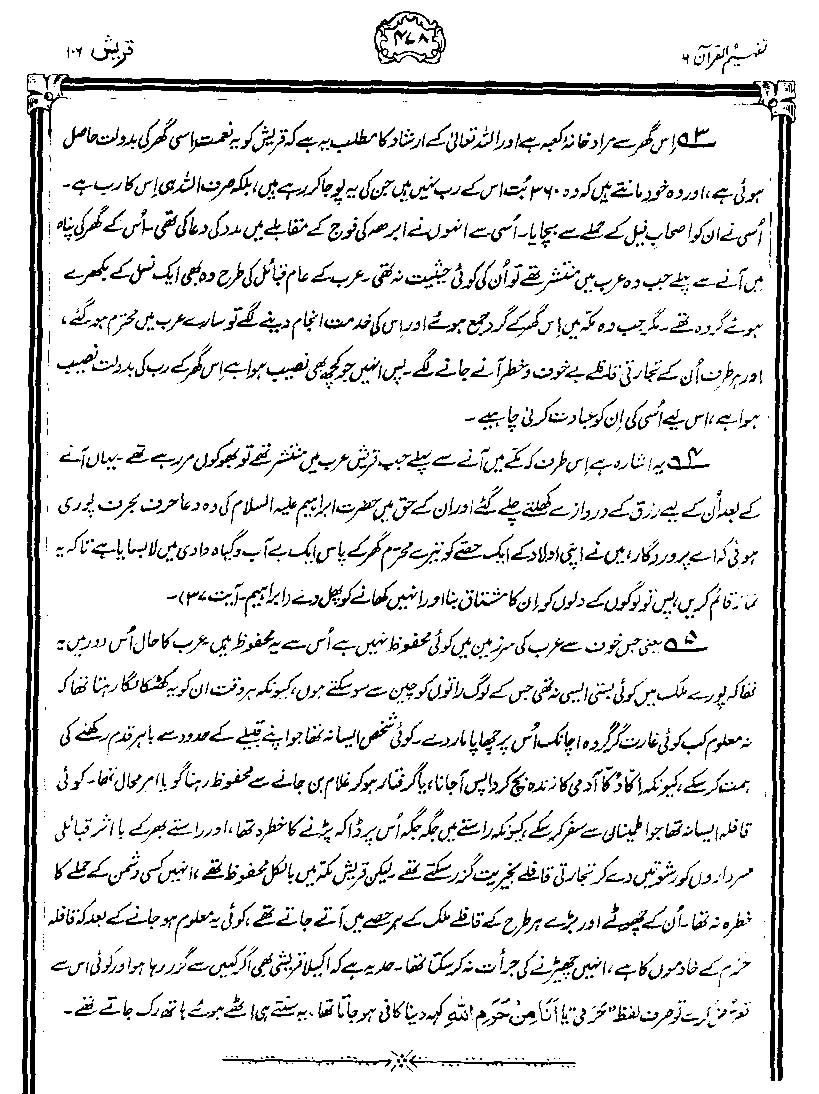 تفہیم القرآن ۶
۴۷۸
قریش ۱۰۶
۳ اِس گھر سے مراد خانۂ کعبہ ہے اور اللہ تعالیٰ کے ارشاد کا مطلب یہ ہے کہ قریش کو یہ نعمت اِسی گھر کی بدولت حاصل
ہوئی ہے، اور وہ خود مانتے ہیں کہ وہ ۳۶۰ بُت اس کے رب نہیں ہیں جن کی یہ پوجا کر رہے ہیں، بلکہ صرف اللہ ہی اِس کا رب ہے۔
اُسی نے ان کو اصحابِ فیل کے حملے سے بچایا۔ اُسی سے انہوں نے ابرھہ کی فوج کے مقابلے میں مدد کی دعا کی تھی۔ اُس کے گھر کی پناہ
میں آنے سے پہلے جب وہ عرب میں منتشر تھے تو اُن کی کوئی حیثیت نہ تھی۔ عرب کے عام قبائل کی طرح وہ بھی ایک نسل کے بکھرے
ہوئے گروہ تھے۔ مگر جب وہ مکہ میں اِس گھر کے گرد جمع ہوئے اور اِس کی خدمت انجام دینے لگے تو سارے عرب میں محترم ہو گئے،
اور ہر طرف اُن کے تجارتی قافلے بے خوف و خطر آنے جانے لگے۔ پس انہیں جو کچھ بھی نصیب ہوا ہے اِس گھر کے رب کی بدولت نصیب
ہوا ہے، اس لیے اُسی کی اِن کو عبادت کرنی چاہیے۔
۴ یہ اشارہ ہے اِس طرف کہ مکے میں آنے سے پہلے جب قریش عرب میں منتشر تھے تو بھوکوں مر رہے تھے۔ یہاں آنے
کے بعد اُن کے لیے رزق کے دروازے کھلتے چلے گئے اور ان کے حق میں حضرت ابراہیم علیہ السلام کی وہ دعا حرف بحرف پوری
ہوئی کہ اے پروردگار، میں نے اپنی اولاد کے ایک حصے کو تیرے محترم گھر کے پاس ایک بے آب و گیاہ وادی میں لا بسایا ہے تاکہ یہ
نماز قائم کریں، پس تو لوگوں کے دلوں کو اِن کا مشتاق بنا اور اِنہیں کھانے کو پھل دے (ابراہیم۔ آیت ۳۷)۔
۵ یعنی جس خوف سے عرب کی سرزمین میں کوئی محفوظ نہیں ہے اُس سے یہ محفوظ ہیں۔ عرب کا حال اُس دور میں یہ
تھا کہ پورے ملک میں کوئی بستی ایسی نہ تھی جس کے لوگ راتوں کو چین سے سو سکتے ہوں، کیونکہ ہر وقت ان کو یہ کھٹکا لگا رہتا تھا کہ
نہ معلوم کب کوئی غارت گر گروہ اچانک اُس پر چھاپا مار دے۔ کوئی شخص ایسا نہ تھا جو اپنے قبیلے کے حدود سے باہر قدم رکھنے کی
ہمت کر سکے، کیونکہ اِکّا دُکّا آدمی کا زندہ بچ کر واپس آجانا، یا گرفتار ہو کر غلام بن جانے سے محفوظ رہنا گویا امرِ محال تھا۔ کوئی
قافلہ ایسا نہ تھا جو اطمینان سے سفر کر سکے، کیونکہ راستے میں جگہ جگہ اُس پر ڈاکہ پڑنے کا خطرہ تھا، اور راستے بھر کے با اثر قبائلی
سرداروں کو رشوتیں دے کر تجارتی قافلے بخیریت گزر سکتے تھے۔ لیکن قریش مکہ میں بالکل محفوظ تھے، اُنہیں کسی دشمن کے حملے کا
خطرہ نہ تھا۔ اُن کے چھوٹے اور بڑے ہر طرح کے قافلے ملک کے ہر حصے میں آتے جاتے تھے، کوئی یہ معلوم ہو جانے کے بعد کہ قافلہ
حرم کے خادموں کا ہے، انہیں چھیڑنے کی جرأت نہ کر سکتا تھا۔ حد یہ ہے کہ اکیلا قریشی بھی اگر کہیں سے گزر رہا ہو اور کوئی اس سے
تعرّض کرتا تو صرف لفظ "حَرَمی" یا اَنَا مِنْ حَرَمِ اللّٰهِ کہہ دینا کافی ہو جاتا تھا، یہ سنتے ہی اٹھے ہوئے ہاتھ رک جاتے تھے۔